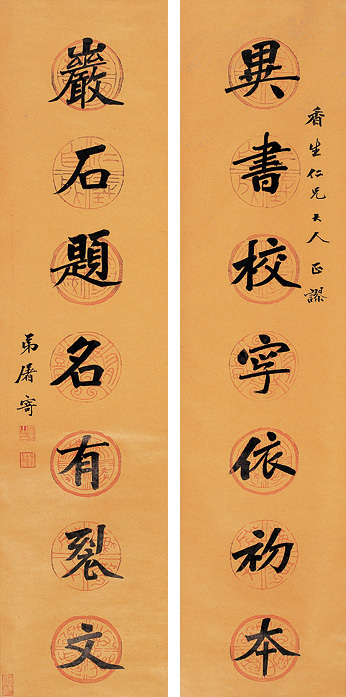 香生仁兄大人 正謬
異書校字依初本
巖石題名有裂文
弟屠寄